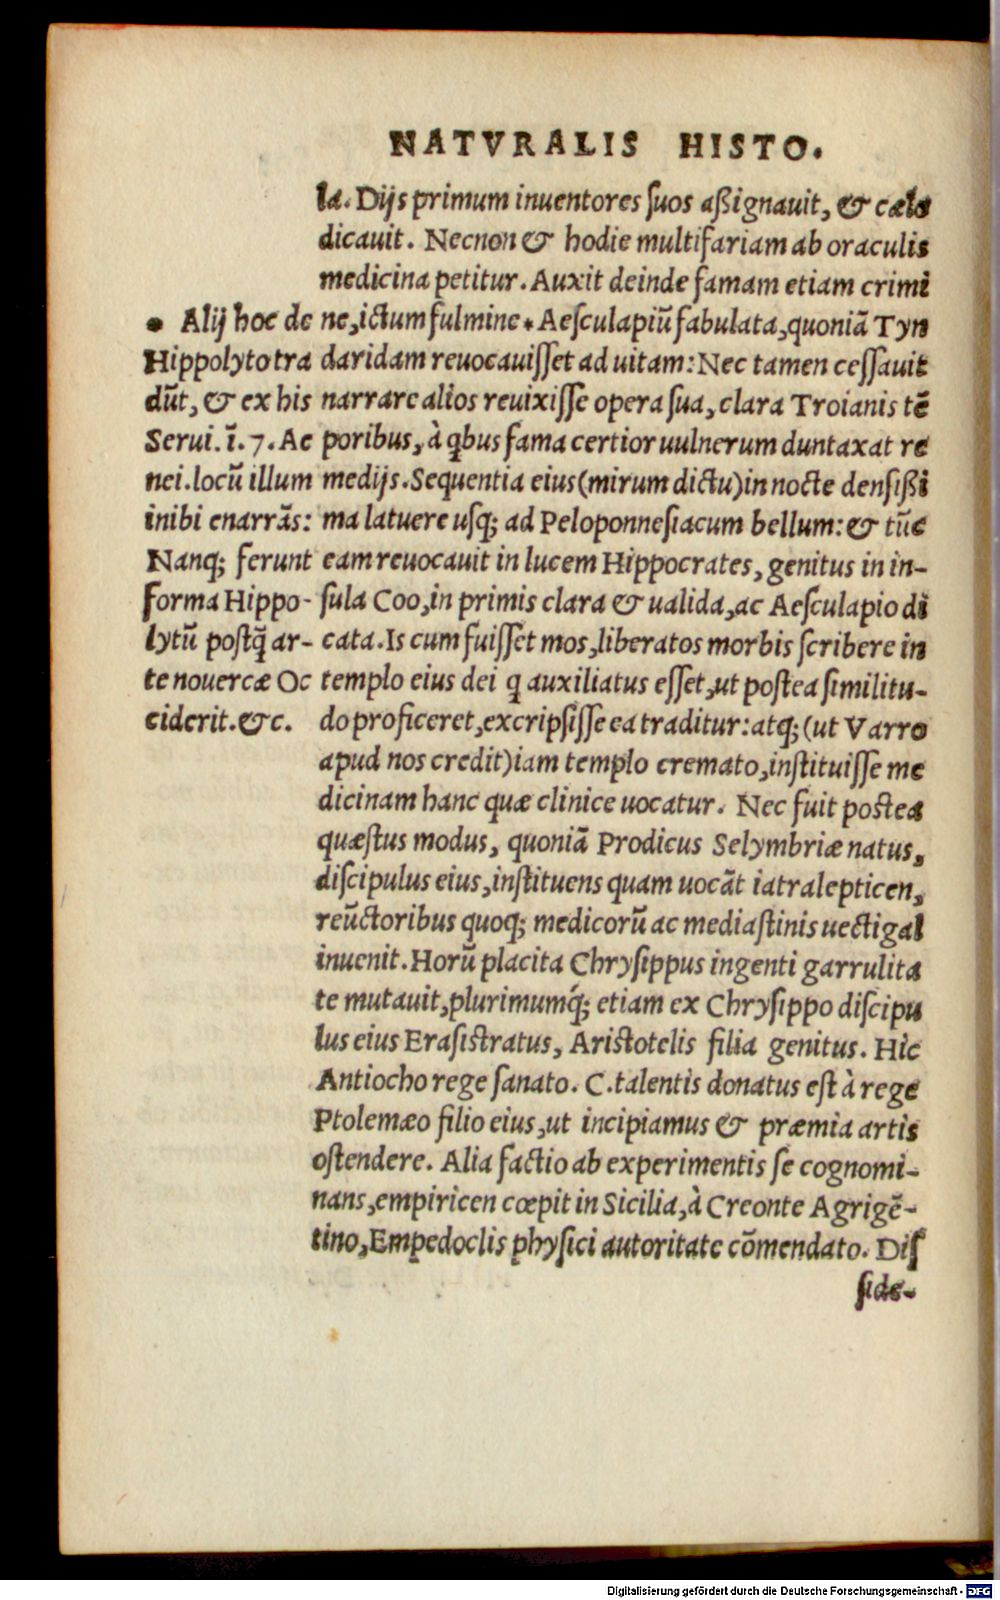 NATVRALIS HISTO.
la. Dijs primum inuentores ſuos aßignauit, & cælo
dicauit. Necnon & hodie multifariam ab oraculis
medicina petitur. Auxit deinde famam etiam crimi
ne, ictum fulmine * Aeſculapiũ fabulata, quoniã Tyn
daridam reuocauiſſet ad uitam: Nec tamen ceſſauit
narrare alios reuixiſſe opera ſua, clara Troianis tẽ
poribus, à qbus fama certior uulnerum duntaxat re
medijs. Sequentia eius (mirum dictu) in nocte denſißi
ma latuere uſq; ad Peloponneſiacum bellum: & tũc
eam reuocauit in lucem Hippocrates, genitus in in-
ſula Coo, in primis clara & ualida, ac Aeſculapio di
cata. Is cum fuiſſet mos, liberatos morbis ſcribere in
templo eius dei q auxiliatus eſſet, ut poſtea ſimilitu-
do proficeret, excripſiſſe ea traditur: atq; (ut Varro
apud nos credit) iam templo cremato, inſtituiſſe me
dicinam hanc quæ clinice uocatur. Nec fuit poſtea
quæſtus modus, quoniã Prodicus Selymbriæ natus,
diſcipulus eius, inſtituens quam uocãt iatralepticen,
reũctoribus quoq; medicorũ ac mediaſtinis uectigal
inuenit. Horũ placita Chryſippus ingenti garrulita
te mutauit, plurimumq́; etiam ex Chryſippo diſcipu
lus eius Eraſiſtratus, Ariſtotelis filia genitus. Hic
Antiocho rege ſanato. C. talentis donatus eſt à rege
Ptolemæo filio eius, ut incipiamus & præmia artis
oſtendere. Alia factio ab experimentis ſe cognomi-
nans, empiricen cœpit in Sicilia, à Creonte Agrigẽ-
tino, Empedoclis phyſici autoritate cõmendato. Diſ
ſide-
* Alij hoc de
Hippolyto tra
dũt, & ex his
Serui. ĩ. 7. Ae
nei. locũ illum
inibi enarrãs:
Nanq; ferunt
forma Hippo-
lytũ poſtq̃ ar-
te nouercæ Oc
ciderit. &c.
Digitalisierung gefördert durch die Deutsche Forschungsgemeinschaft - DFG